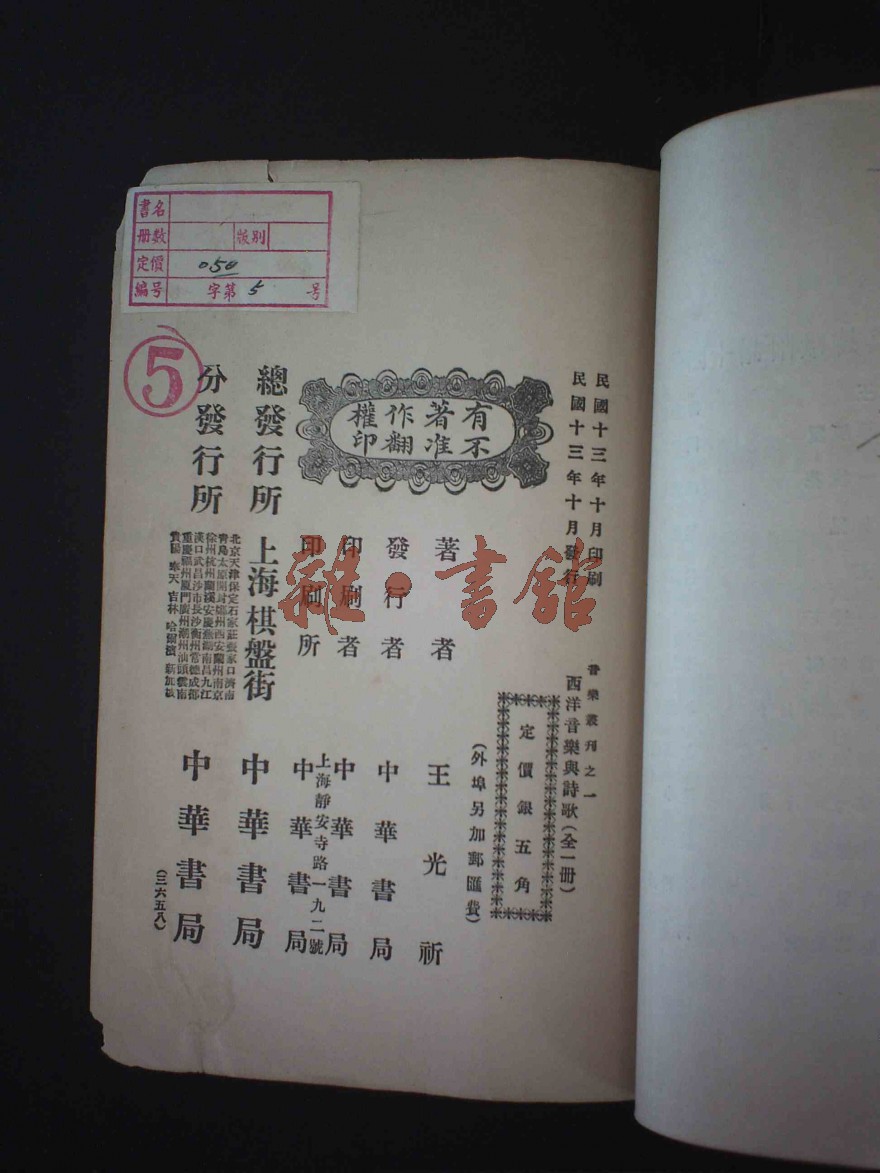 書名
册數 版別
定價 050
編号 字第 5 号
5
民國十三年十月印刷
民國十三年十月發行
音樂叢刊之一
西洋音樂與詩歌(全一册)
定價銀五角
(外埠另加郵匯費)
有著作權
不准翻印
著者 王光祈
發行者 中華書局
印刷者 中華書局
印刷所 上海靜安寺路一九二號 中華書局
總發行所 上海棋盤街 中華書局
分發行所
北京天津保定石家莊張家口濟南
青島太原開封鄭州西安蘭州南京
徐州杭州蘭溪安慶蕪湖南昌九江
漢口武昌沙市長沙衡州常德成都
重慶福州厦門廣州潮州汕頭雲南
貴陽 奉天 吉林 哈爾濱 新加坡
中華書局
(三六五八)
雜·書館